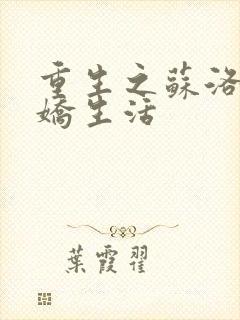 重生之蘇洛
嬌生活
葉霞翟